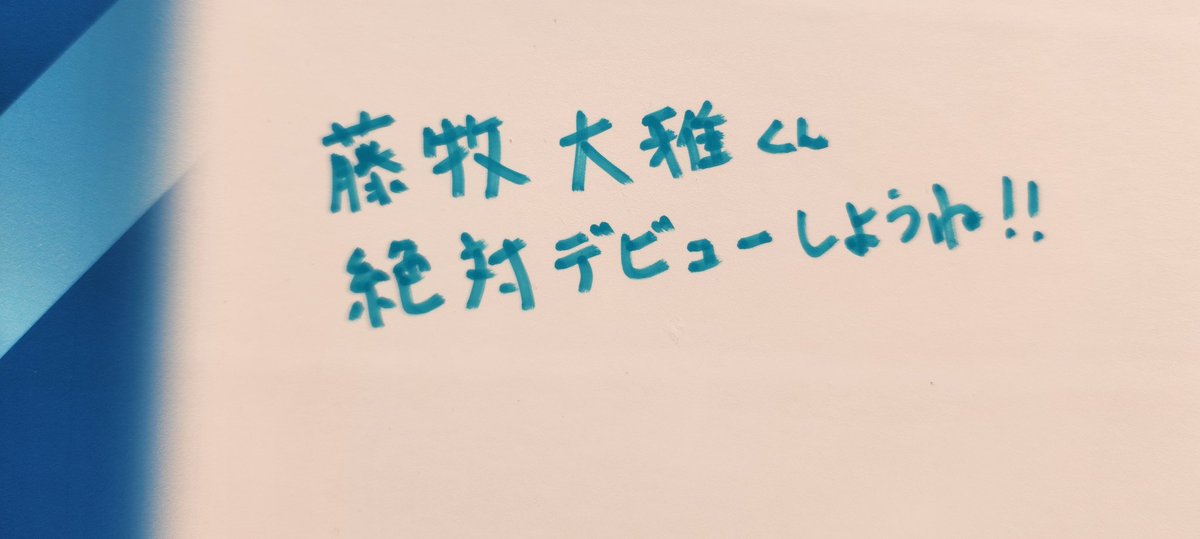 藤牧大雅くん
絶対デビューしようね!!